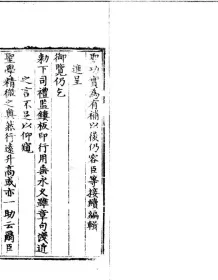 聖功實為有補以後仍容臣等接續編輯
進呈
御覽仍乞
勑下司禮監鏤板印行用垂永久雖章句淺近
之言不足以仰
聖學精微之奧然行遠升高或亦一助云爾臣